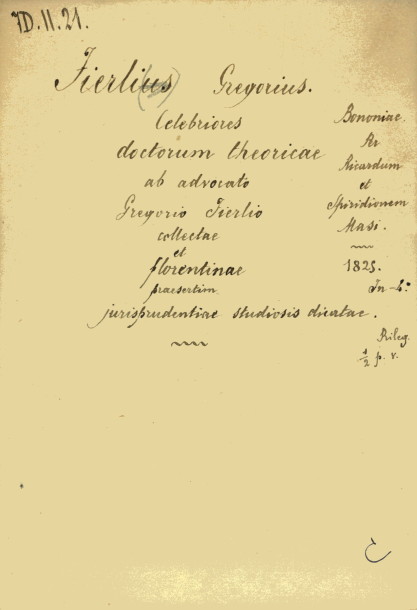 ID.II.21.
Fierli(us) Gregorius.
Celebriores
doctorum theoricae
ab advocato
Gregorio Fierlio
collectae
et
florentinae
praesertim
jurisprudentiae studiosis dicatae.
Bononiae.
Ricardum
et
Spiridionem
Masi.
1825.
In-4:
Rileg.
1/2 p. v.